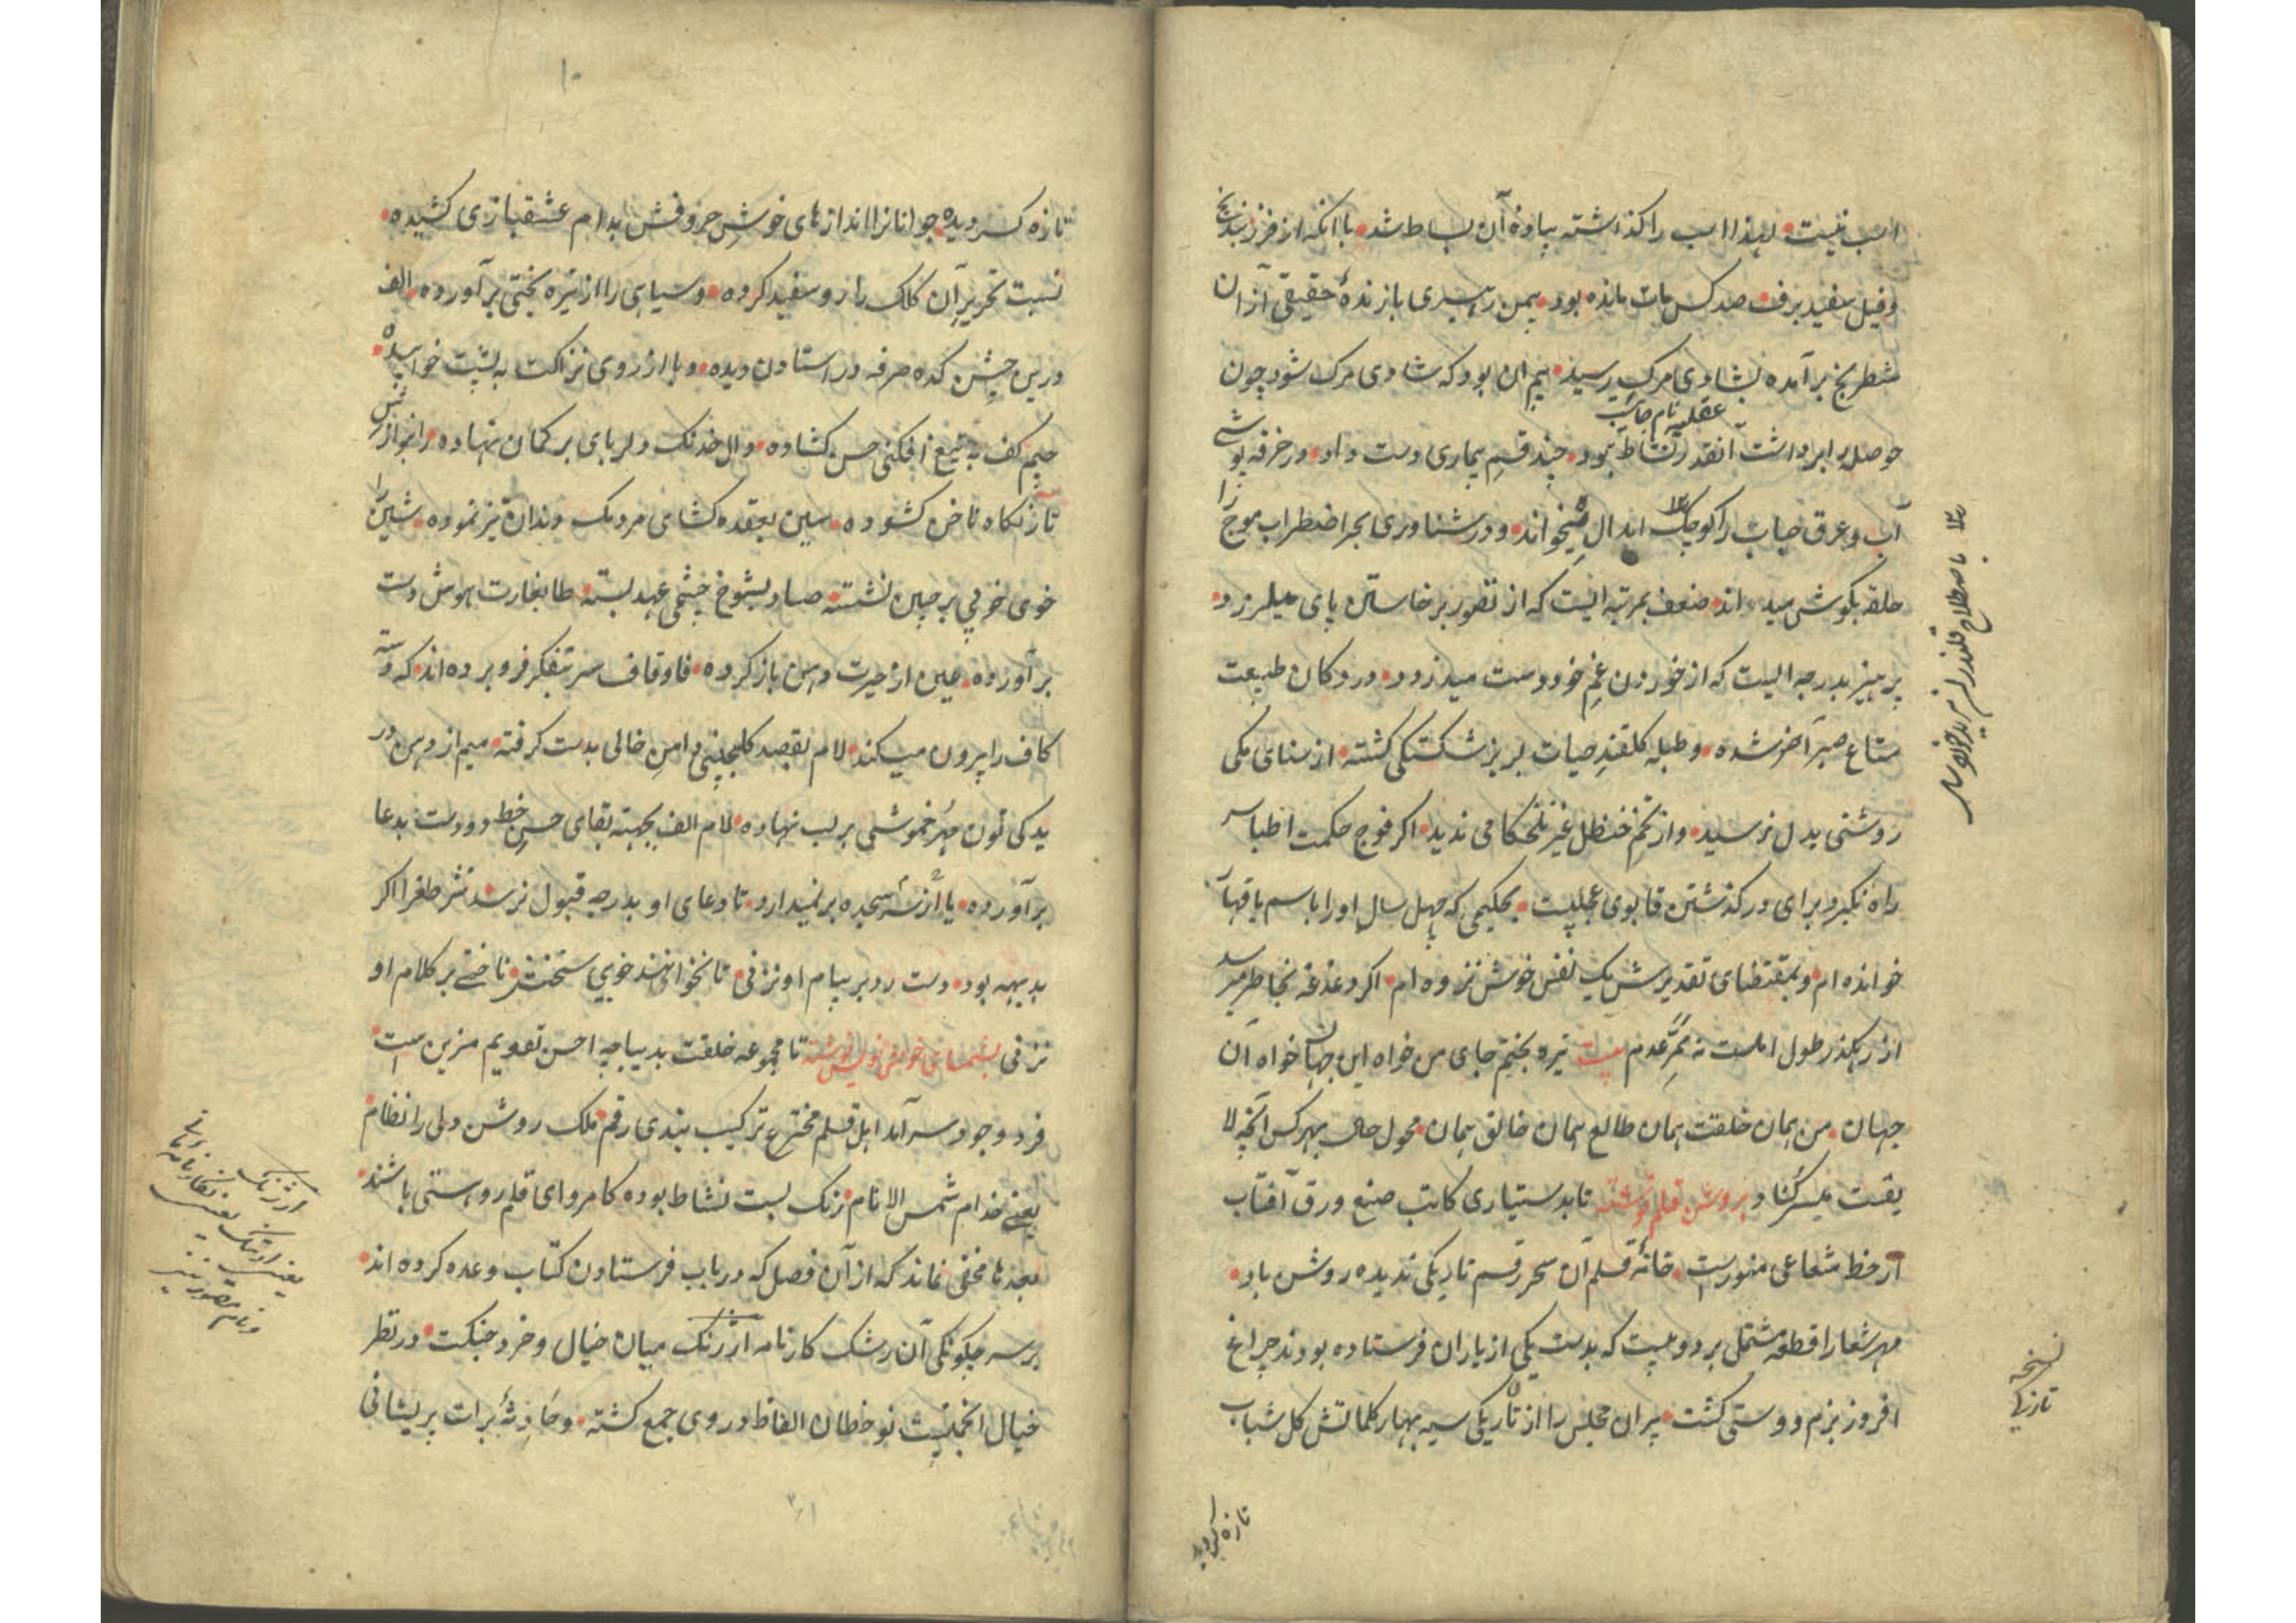 اسب نیست لهذا اسب را کذاشته پیاده آن بساط شد با آنکه از فرزند یخ
و فیل سفید برف صد کس مات مانده بود بیمن رهبری بازندهٔ حقیقی از آن
شطرنج برآمده بشادی مرک رسید بیم آن بود که شادی مرک شود چون
عقلیه نام جایست
حوصله برابر داشت آنقدر نشاط نبود چند قسم بیماری دست داد در خرقه پوشی
آب و عرق حباب را کوچک ابدال میخواند و در شناوری بحر اضطراب موج را
حلقه بکوش میداند ضعف بمرتبه ایست که از تصور برخاستن پای میلرزد
پرهیز بدرجه ایست که از خوردن غم خود دست میدزدد در دکان طبیعت
متاع صبر آخر شده و طبله کلقند حیات لبریز شکستکی کشته از سنای مکی
روشنی بدل نرسید و از تخم حنظل غیر تلخکامی ندید اکر فوج حکمت اطبا سر
راه نکیرد برای درکذشتن قابوی عجبیست بحکیمی که چهل سال او را باسم یا قهار
خوانده ام و بمقتضای تقدیرش یک نفس خوش نزده ام اکر دغدغه بخاطر میرسد
از رهکذر طول املست نه ممر عدم بیت تیره بختم جای من خواه این جهان خواه آن
جهان من همان خلقت همان طالع همان خالق همان محول حال بهر کس آنچه لا
یقست میسر کناد بروشن قلم نوشته تا بدستیاری کاتب صنع ورق آفتاب
از خط شعاعی منورست خانهٔ قلم آن سحر رقم تاریکی ندیده روشن باد
مهر شعارا قطعه مشتمل بر دو بیت که بدست یکی از یاران فرستاده بودند چراغ
افروز بزم دوستی کشت پیران مجلس را از تاریکی سیه بهار کلماتش کل شباب
تازه کردید
نسخه
تازکی
۱۰
تازه کردیده جوانانرا اندازهای خوش حروفش بدام عشقبازی کشیده
نسبت تحریر آن کلک را رو سفید کرده و سیاهی را از تیره بختی برآورده الف
درین جشن کده صرفه در استادن دیده و با از روی نزاکت به پشت خوابیده
جیم کف به تیغ افکنی حسن کشاده دال خدنک دلربای بر کمان نهاده را بنوازش
تار نکاه ناخن کشوده سین بعقده کشای مردمک دندان تیز نموده شین را
خوی خوبی بر جبین نشسته صاد بشوخ چشمی عهد بسته طا بغارت هوش دست
برآورده عین از حیرت دهن باز کرده فا و قاف سر بتفکر فرو برده اند که دسته
کاف را پرون میکند لام بقصد کلچینی دامن خالی بدست کرفته میم از دهن در
یدکی نون مهر خموشی بر لب نهاده لام الف بجهته بقای حسن خط دو دست بدعا
برآورده یا از سجده برنمیدارد تا دعای او بدرجه قبول نرسد نثر طغرا اکر
بدیهه بود دست رد بر پیام او نزنی تا نخوانند خوبی سخنش ناخنی بر کلام او
نزنی بشمسای خوش نویس نوشته تا مجموعه خلقت بدیباجه احسن تقویم مزین ست
فرد وجود سرآمد اهل قلم مخترع ترکیب بندی رقم ملک روشن دلی را نظام
یعنی خدام شمس الانام زنک بست نشاط بوده کامروای قلمرو هستی باشند
بعد ها مخفی نماند که از آن فصل که در باب فرستادن کتاب وعده کرده اند
برسر چکونکی آن رشک کارنامه ارژنک میان خیال و خرد جنکست در نظر
خیال انجمنیست نوخطان الفاظ در وی جمع کشته و حادثهٔ برات پریشانی
ارژنک